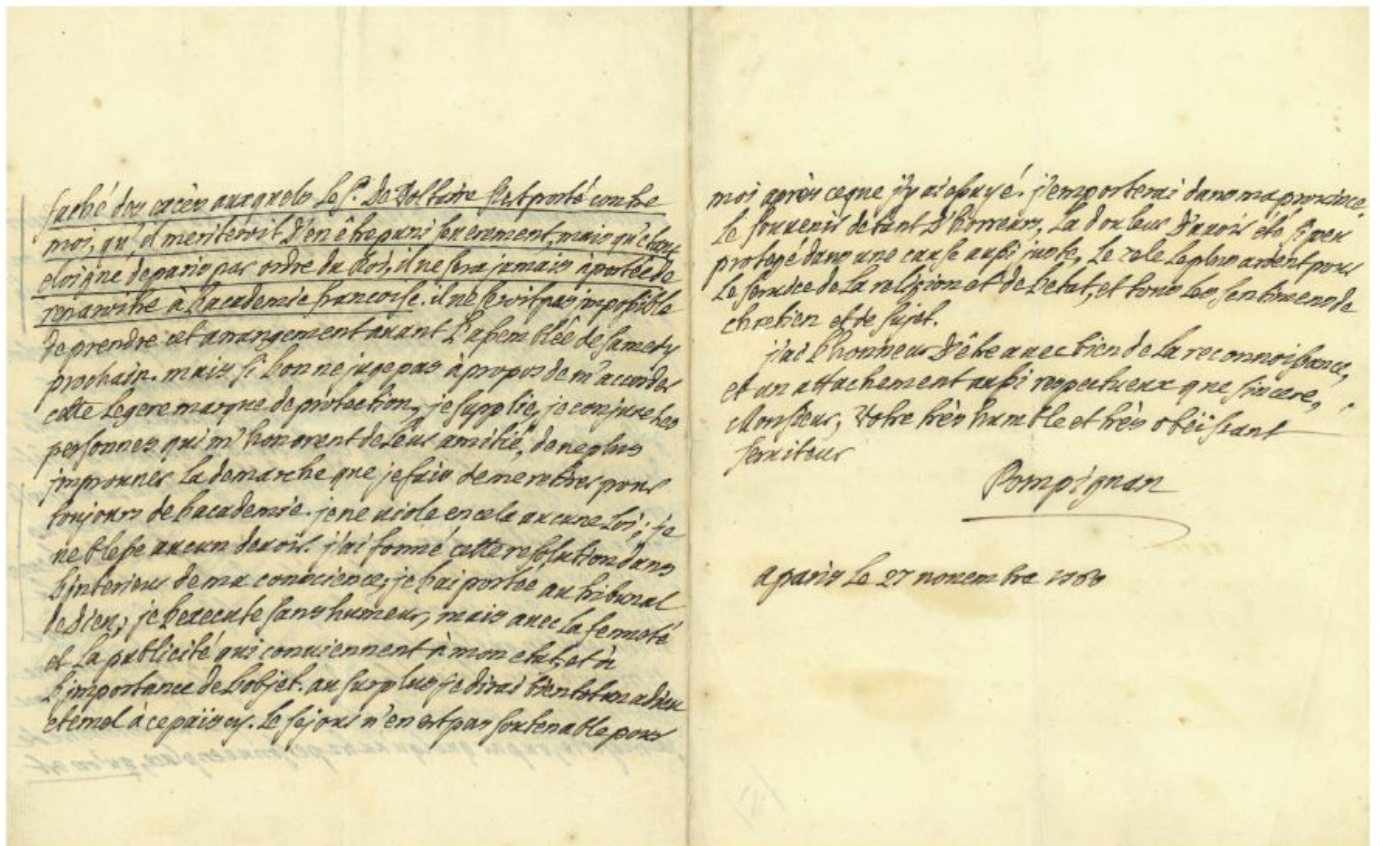 faché des excès auxquels le Sr. De Voltaire s'est porté contre
moi, qu'il meriteroit d'en être puni severement, mais qu'étant
eloigné de paris par ordre du Roi, il ne sera jamais à portée de
reparoitre à l'academie françoise. il ne seroit pas impossible
de prendre cet arrangement avant l'assemblée de samedy
prochain. mais si l'on ne juge pas à propos de m'accorder
cette legere marque de protection, je supplie, je conjure les
personnes qui m'honorent de leur amitié, de ne plus
improuver la demarche que je fais de me retirer pour
toujours de l'academie. je ne viole en cela aucune Loi; je
ne blesse aucun devoir. j'ai formé cette resolution dans
l'interieur de ma conscience; je l'ai portée au tribunal
de dieu; je l'execute sans humeur, mais avec la fermeté
et la publicité qui conviennent à mon etat, et à
l'importance de l'objet. au surplus je dirai bientot un adieu
eternel à ce païs cy. le sejour n'en est pas soutenable pour
moi après ce que j'y ai essuyé. j'emporterai dans ma province
le souvenir de tant d'horreurs, la douleur d'avoir été si peu
protegé dans une cause aussi juste, le zele le plus ardent pour
le service de la religion et de l'etat, et tous les sentimens de
chretien et de sujet.
j'ai l'honneur d'être avec bien de la reconnoissance,
et un attachement aussi respectueux que sincere,
Monsieur, Votre très humble et très obéissant
serviteur
Pompignan
a paris le 27 novembre 1760